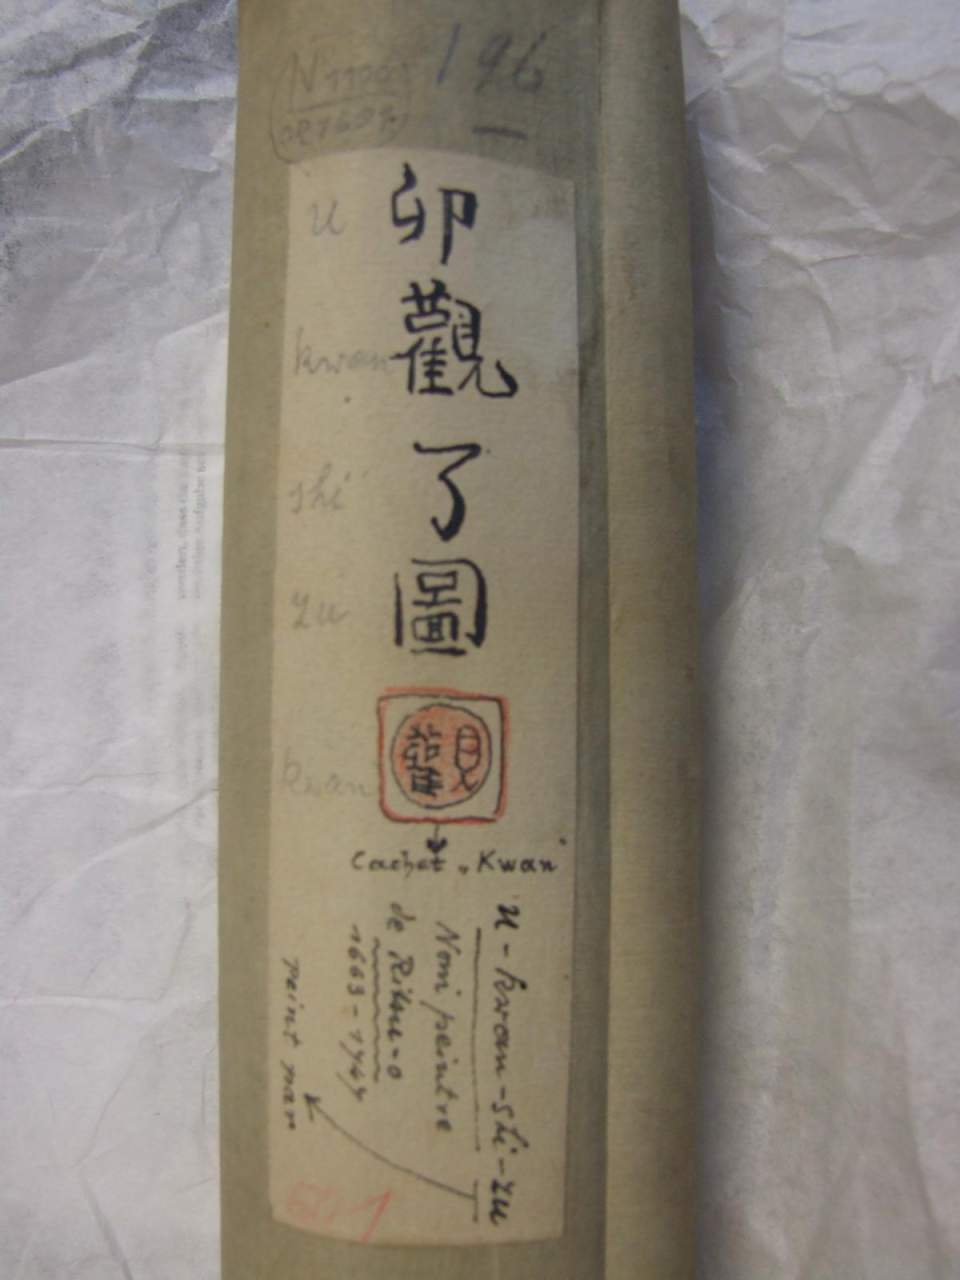 196
u
卯
kwan
觀
shi
了
zu
圖
kwan
觀
Cachet "Kwan"
u-kwan-shi-zu
Nom peintre
de Ritsu-o
1663-1747
peint par